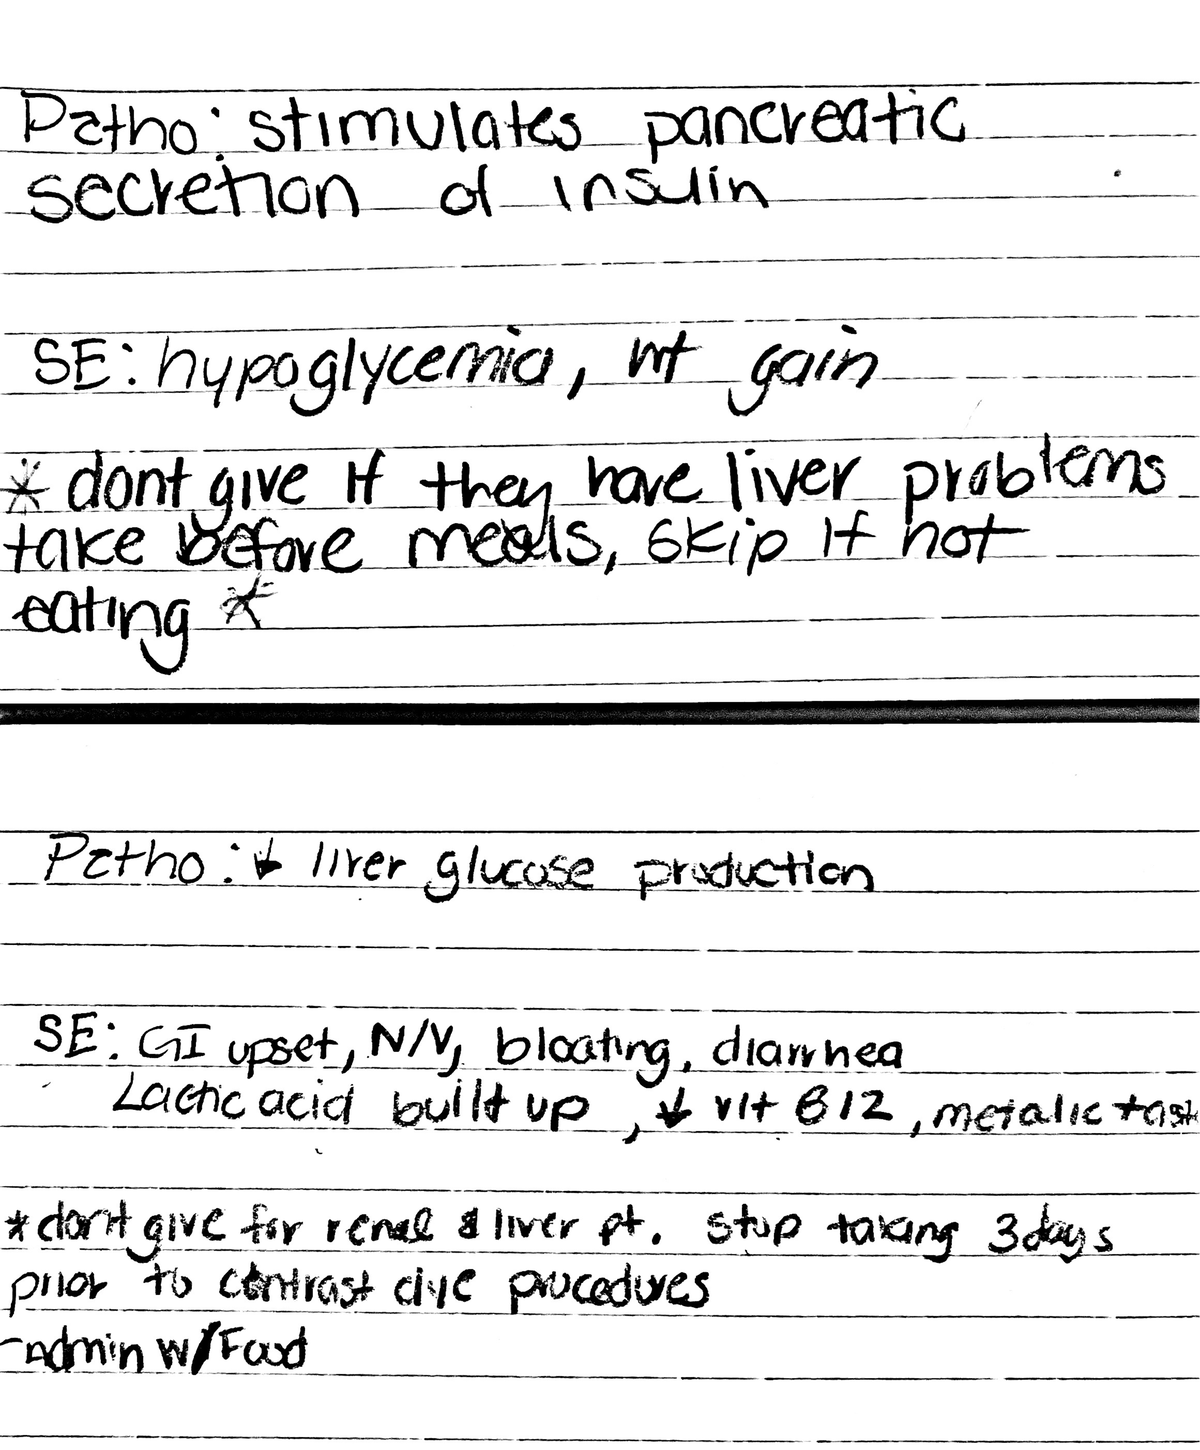 Patho: stimulates pancreatic
secretion of insulin
SE: hypoglycemia, wt gain
* dont give if they have liver problems
take before meals, skip if not
eating *
Patho: ↓ liver glucose production
SE: GI upset, N/V, bloating, diarrhea
Lactic acid built up, ↓ vit B12, metalic tast
* dont give for renal & liver pt. stop taking 3 days
prior to contrast dye procedures
- Admin w/ Food